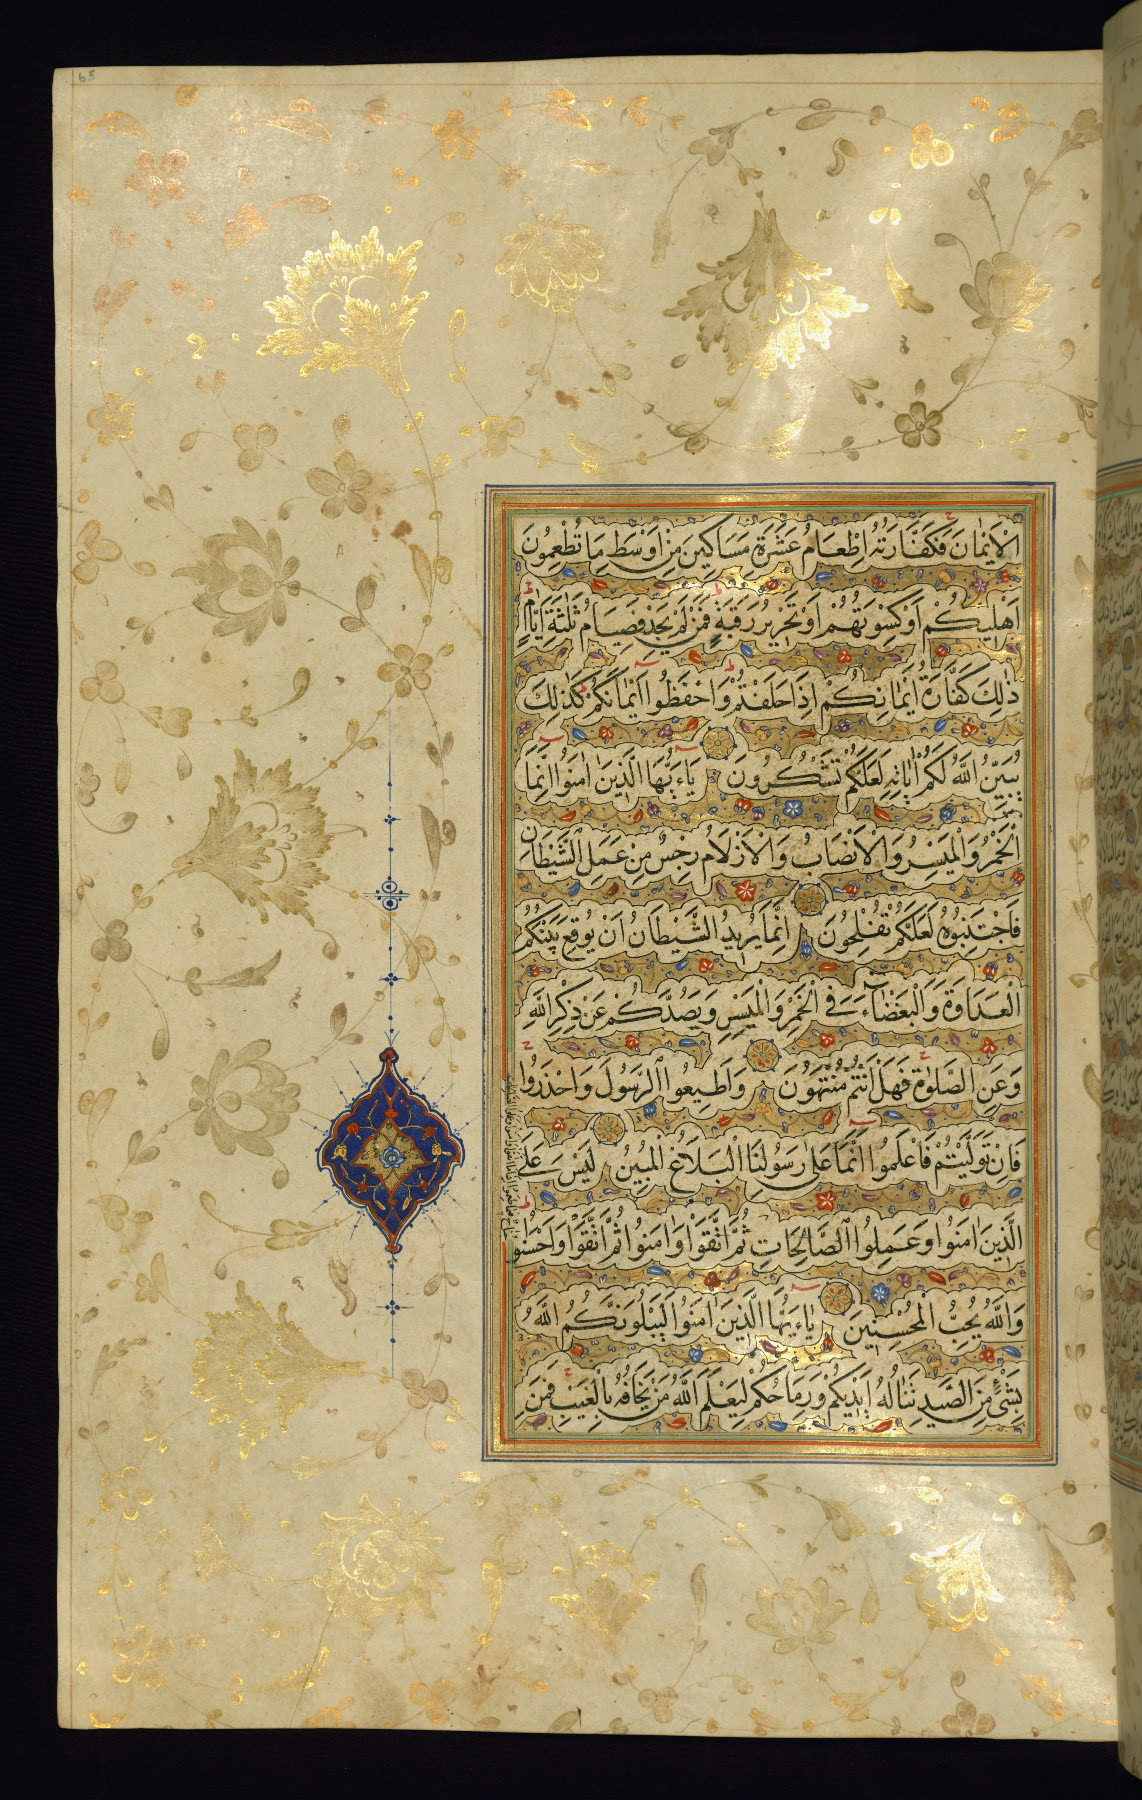 65
الْاَيْمَانَ فَكَفَّارَتُهُ اِطْعَامُ عَشَرَةِ مَسَاكِينَ مِنْ اَوْسَطِ مَا تُطْعِمُونَ
اَهْلِيكُمْ اَوْ كِسْوَتُهُمْ اَوْ تَحْرِيرُ رَقَبَةٍ فَمَنْ لَمْ يَجِدْ فَصِيَامُ ثَلٰثَةِ اَيَّامٍ
ذٰلِكَ كَفَّارَةُ اَيْمَانِكُمْ اِذَا حَلَفْتُمْ وَاحْفَظُوا اَيْمَانَكُمْ كَذٰلِكَ
يُبَيِّنُ اللّٰهُ لَكُمْ اٰيَاتِهِ لَعَلَّكُمْ تَشْكُرُونَ يَاءَيُّهَا الَّذِينَ اٰمَنُوا اِنَّمَا
الْخَمْرُ وَالْمَيْسِرُ وَالْاَنْصَابُ وَالْاَزْلَامُ رِجْسٌ مِنْ عَمَلِ الشَّيْطَانِ
فَاجْتَنِبُوهُ لَعَلَّكُمْ تُفْلِحُونَ اِنَّمَا يُرِيدُ الشَّيْطَانُ اَنْ يُوقِعَ بَيْنَكُمُ
الْعَدَاوَةَ وَالْبَغْضَاءَ فِي الْخَمْرِ وَالْمَيْسِرِ وَيَصُدَّكُمْ عَنْ ذِكْرِ اللّٰهِ
وَعَنِ الصَّلٰوةِ فَهَلْ اَنْتُمْ مُنْتَهُونَ وَاَطِيعُوا الرَّسُولَ وَاحْذَرُوا
فَاِنْ تَوَلَّيْتُمْ فَاعْلَمُوا اَنَّمَا عَلٰى رَسُولِنَا الْبَلَاغُ الْمُبِينُ لَيْسَ عَلَى
الَّذِينَ اٰمَنُوا وَعَمِلُوا الصَّالِحَاتِ ثُمَّ اتَّقَوْا وَاٰمَنُوا ثُمَّ اتَّقَوْا وَاَحْسَنُوا
جناح فيما طعموا اذا ما اتقوا وامنوا وعملوا الصالحات
وَاللّٰهُ يُحِبُّ الْمُحْسِنِينَ يَاءَيُّهَا الَّذِينَ اٰمَنُوا لَيَبْلُوَنَّكُمُ اللّٰهُ
بِشَيْءٍ مِنَ الصَّيْدِ تَنَالُهُ اَيْدِيكُمْ وَرِمَاحُكُمْ لِيَعْلَمَ اللّٰهُ مَنْ يَخَافُهُ بِالْغَيْبِ فَمَنِ